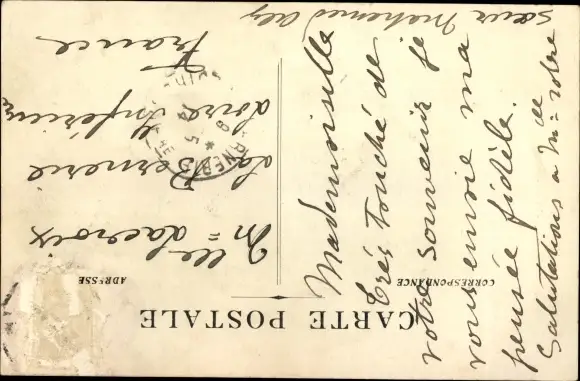 CARTE POSTALE
CORRESPONDANCE
ADRESSE
Mademoiselle
Très Touché de
votre souvenir je
vous envoie ma
pensée fidèle.
Salutations a Mlle votre
sœur Mehemed Aly
Mlle Lacroix
La Bernerie
Loire Inférieure
France